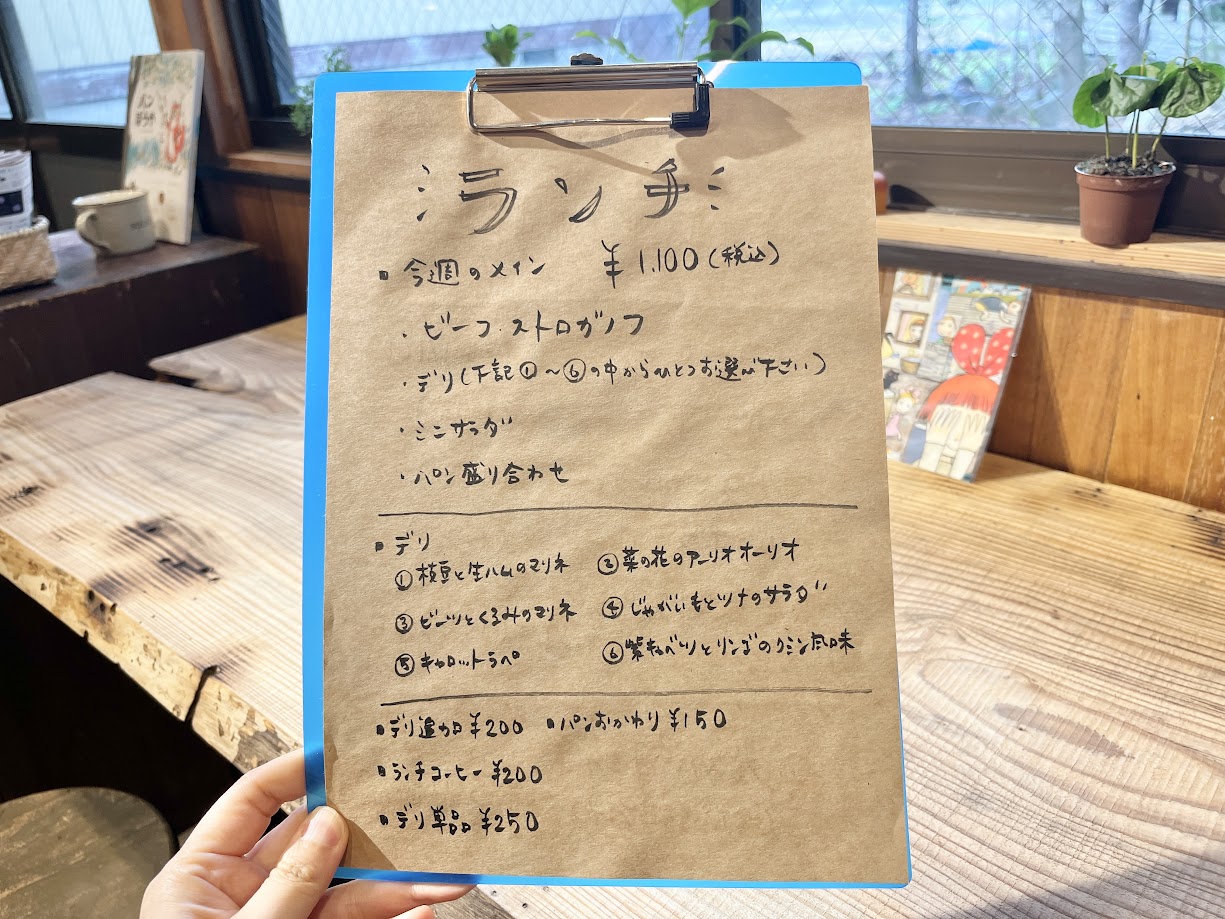 ランチ
今週のメイン ¥1,100(税込)
・ビーフ・ストロガノフ
・デリ(下記①～⑥の中からひとつお選び下さい)
・ミニサラダ
・パン盛り合わせ
デリ
①枝豆と生ハムのマリネ ②菜の花のアーリオオーリオ
③ビーツとくるみのマリネ ④じゃがいもとツナのサラダ
⑤キャロットラペ ⑥紫キャベツとリンゴのクミン風味
デリ追加¥200 パンおかわり¥150
ランチコーヒー¥200
デリ単品¥250